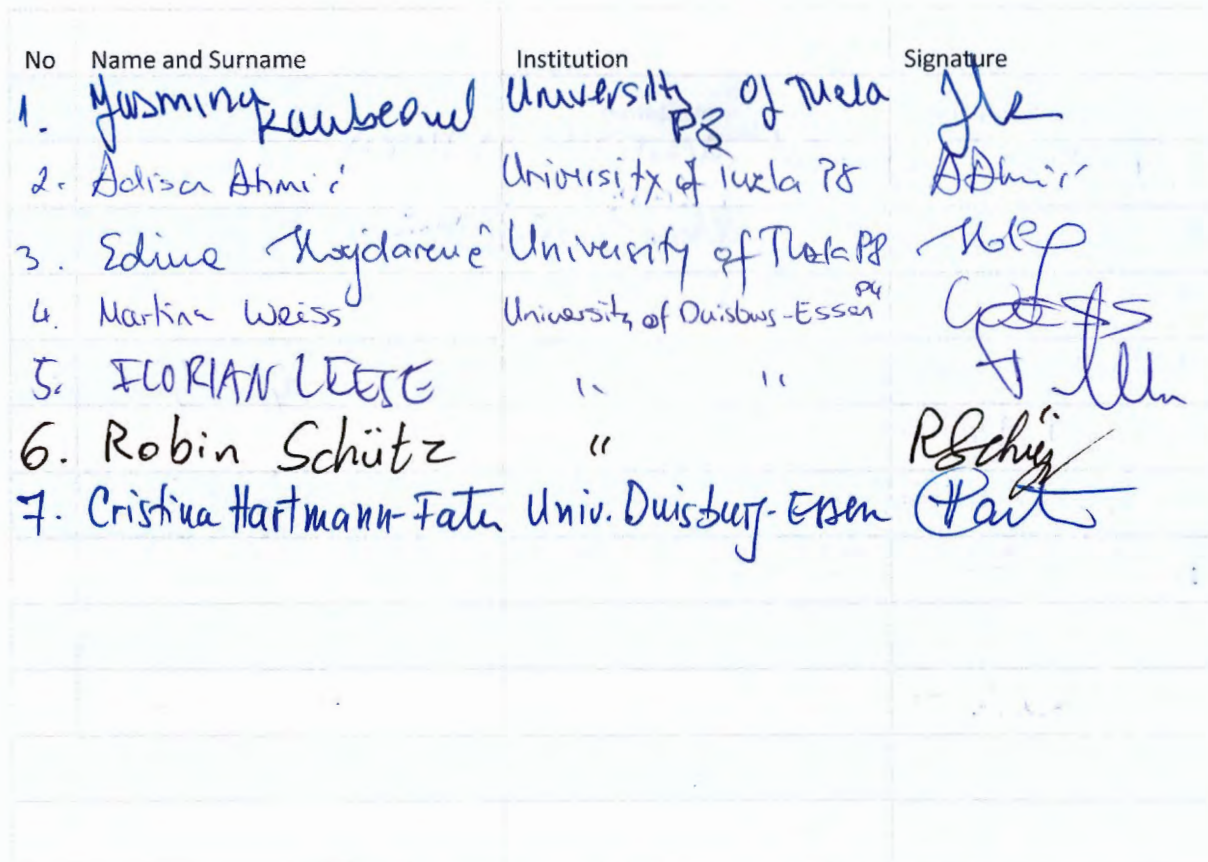 No Name and Surname Institution Signature
1. Jasmina Kamberović University of Tuzla P8
2. Adisa Ahmić University of Tuzla P8 AAhmić
3. Edina Hajdarević University of Tuzla P8
4. Martina Weiss University of Duisburg-Essen P4
5. FLORIAN LEESE " "
6. Robin Schütz " RSchütz
7. Cristina Hartmann-Fatu Univ. Duisburg-Essen